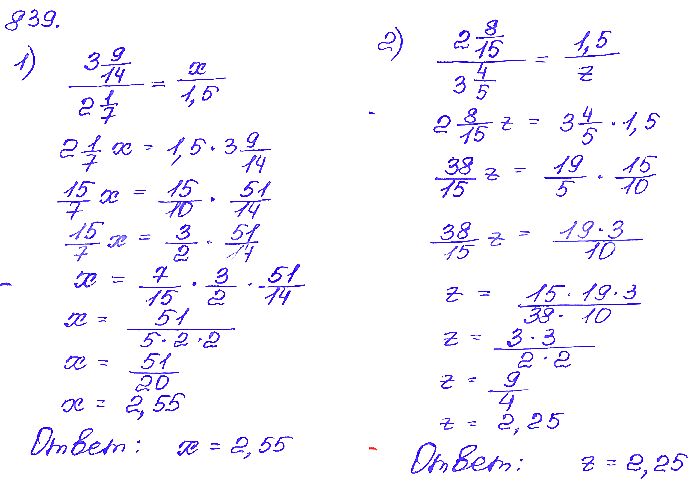 839.
1) 3 9/14 / 2 1/7 = x / 1,5
2 1/7 x = 1,5 · 3 9/14
15/7 x = 15/10 · 51/14
15/7 x = 3/2 · 51/14
x = 7/15 · 3/2 · 51/14
x = 51 / 5·2·2
x = 51/20
x = 2,55
Ответ: x = 2,55
2) 2 8/15 / 3 4/5 = 1,5 / z
2 8/15 z = 3 4/5 · 1,5
38/15 z = 19/5 · 15/10
38/15 z = 19·3 / 10
z = 15·19·3 / 38· 10
z = 3·3 / 2·2
z = 9/4
z = 2,25
Ответ: z = 2,25